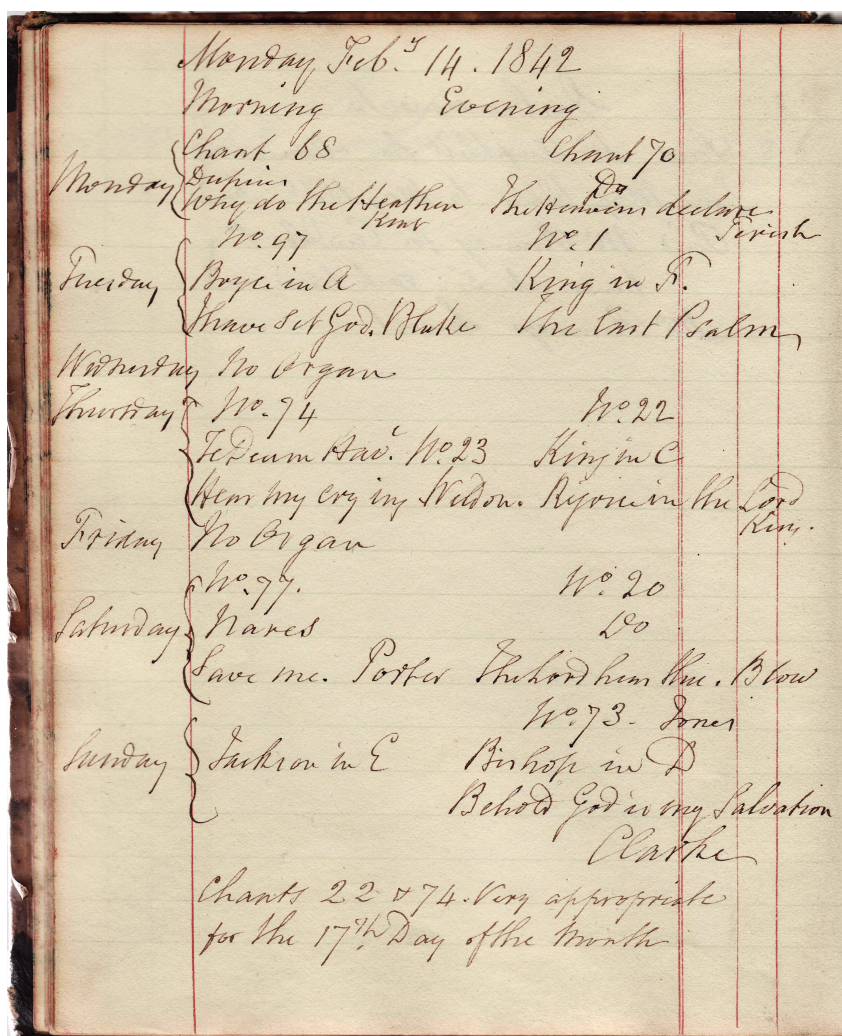 Monday Feb.y 14. 1842
Morning Evening
Chant 68 Chant 70
Monday Dupuis Do
Why do the Heathen The Heavens declare
Kent
No. 97 No. 1
Tuesday Boyce in A King in F.
I have set God. Blake The last Psalm
Wednesday No Organ
Thursday No. 74 No. 22
Te Deum No. 23 King in C
Hear my crying Weldon. Rejoice in the Lord
King.
Friday No Organ
No. 77. No. 20
Saturday Nares Do
Save me. Porter The Lord hear thee. Blow
No. 73 - Jones
Sunday Jackson in E Bishop in D
Behold God is my Salvation
Clarke
Chants 22 & 74. Very appropriate
for the 17th Day of the Month